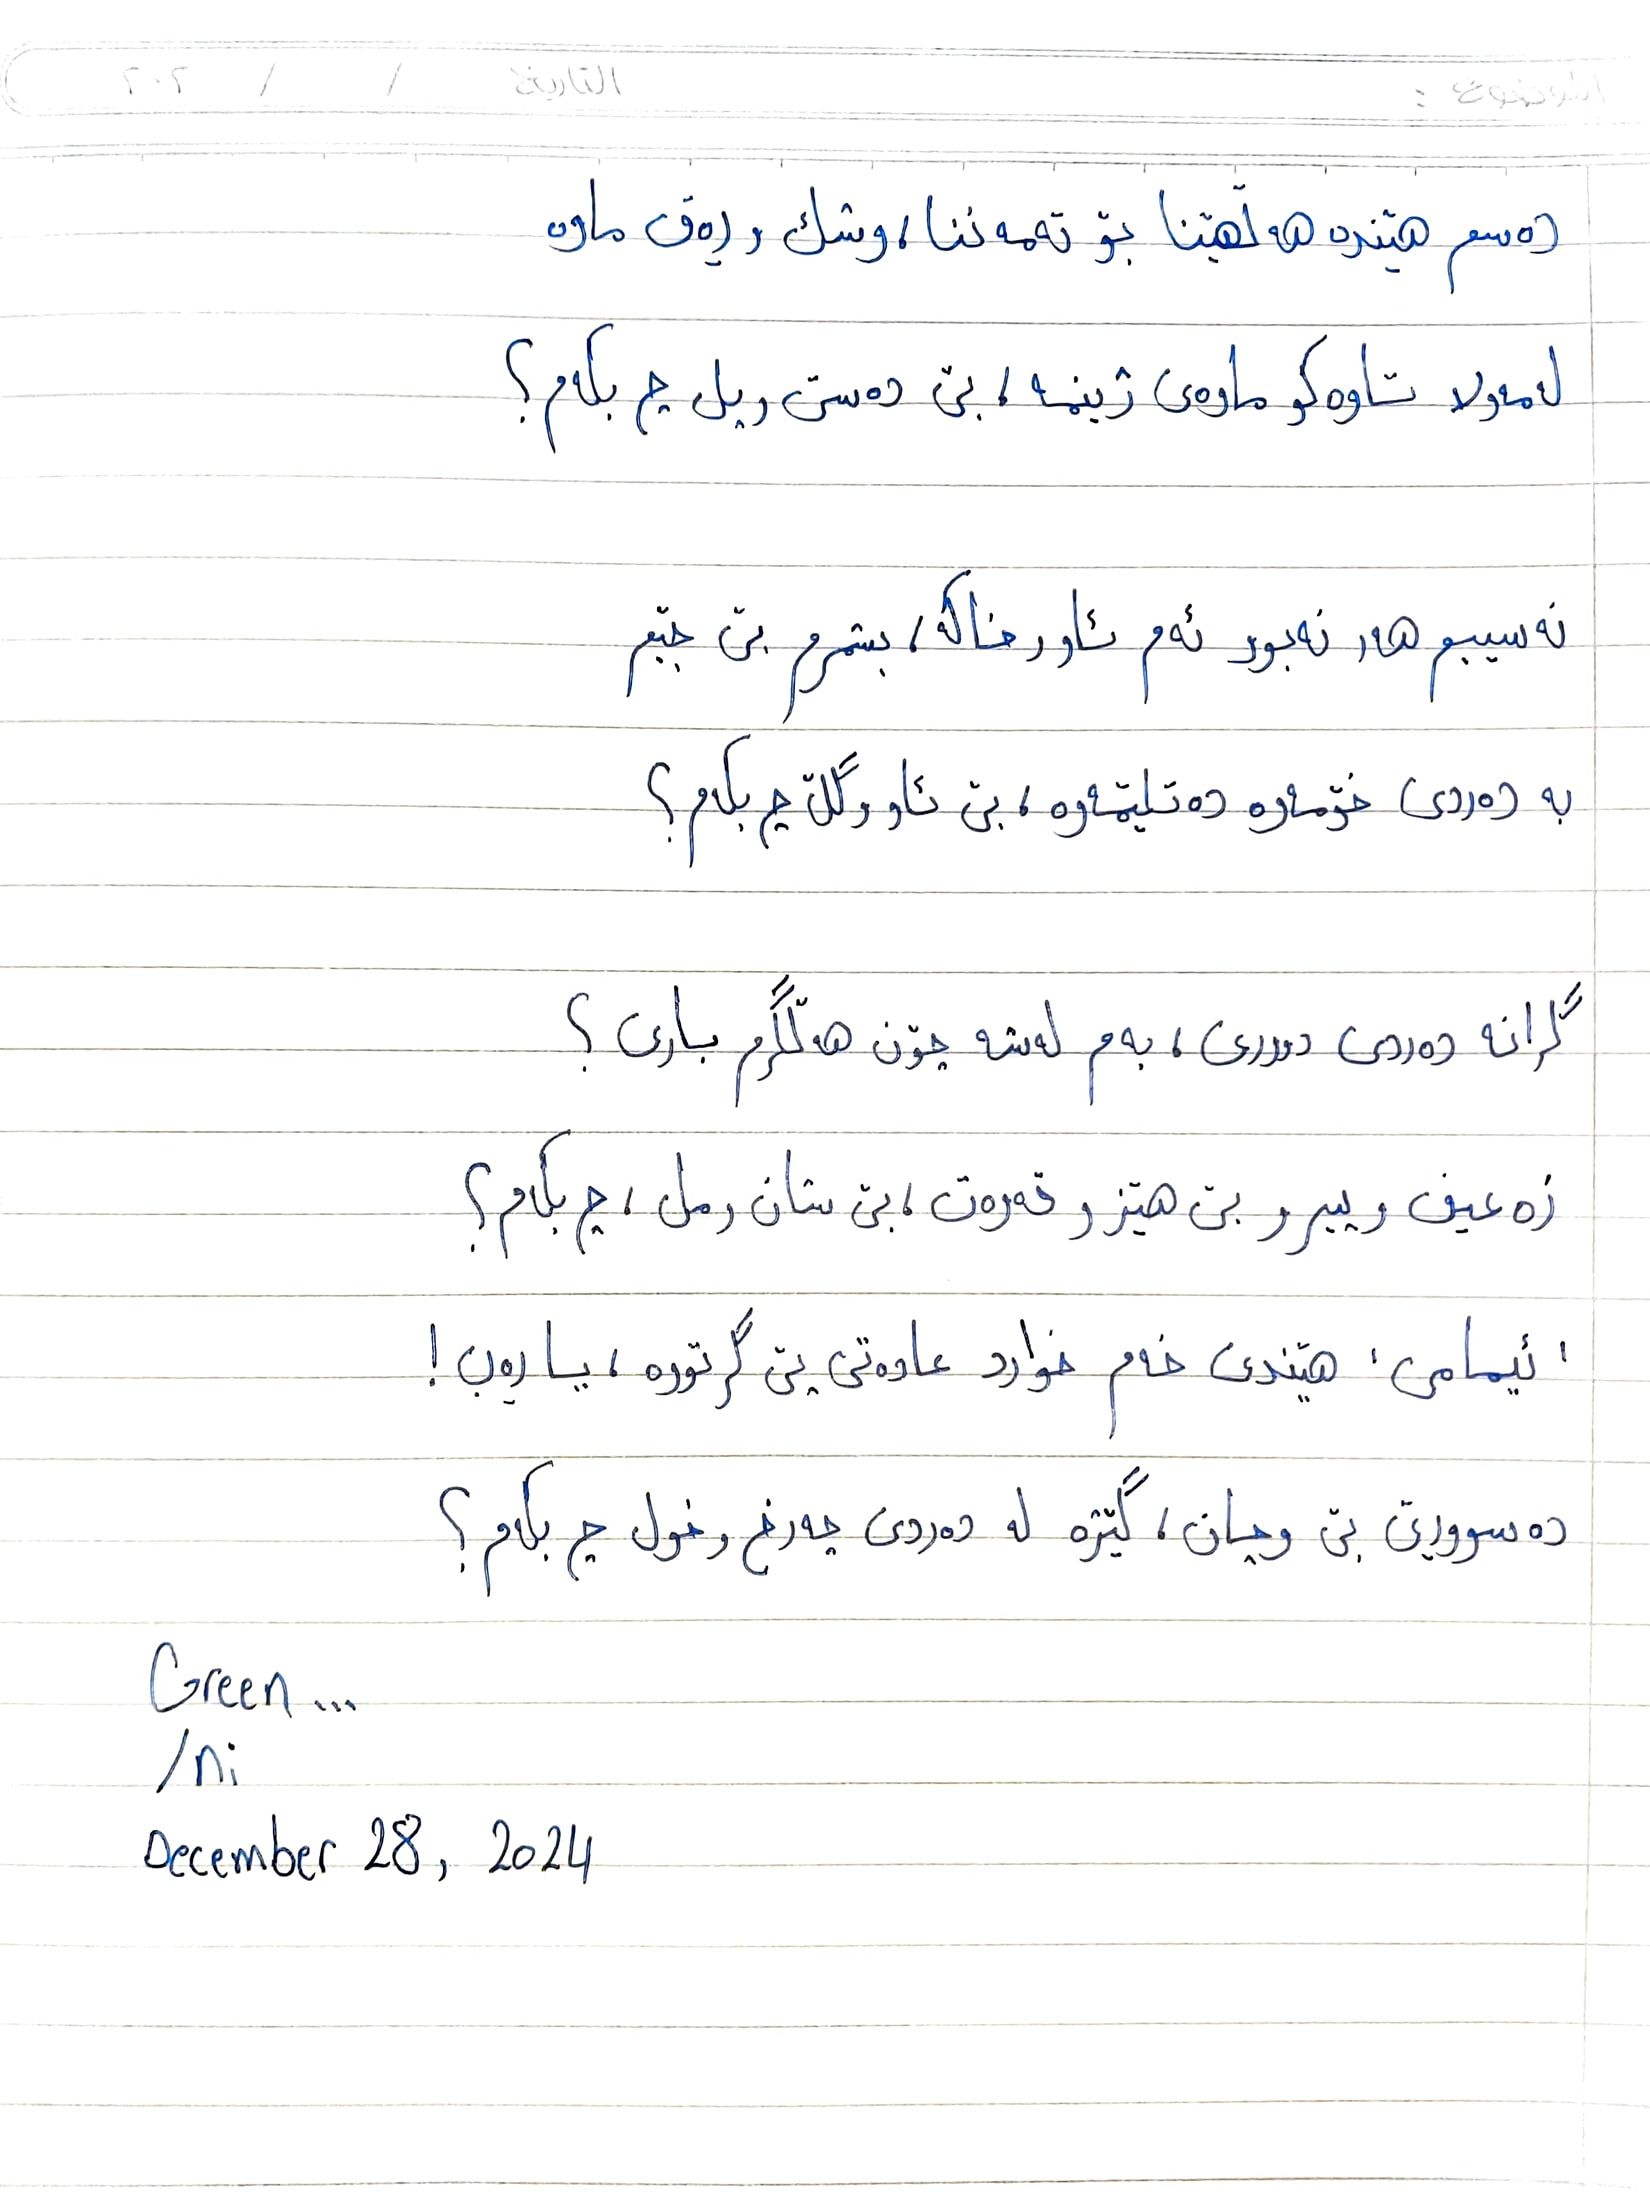 الموضوع :
التاريخ / / ٢٠٢
دەسم هێندە هەڵهێنا بۆ تەمەننا، وشك و ڕەق ماوە
لەمەولا تاوەکو ماوەی ژینمە، بێ دەست و پل چ بکەم؟
نەسیبم هەر نەبوو ئەم ئاو و خاکە، بشمرم بێ جێم
بە دەردی خۆمەوە دەتلێمەوە، بێ ئاو و گڵ چ بکەم؟
گرانە دەردی دووری، بەم لەشە چۆن هەڵگرم باری؟
زەعیف و پیر و بێ هێز و قەوەت، بێ شان و مل، چ بکەم؟
'ئیمامی' هێندی خەم خوارد عادەتی پێ گرتووە، یا ڕەب!
دەسووڕێ بێ وچان، گێژە لە دەردی چەرخ و خول چ بکەم؟
Green...
/ni
December 28, 2024